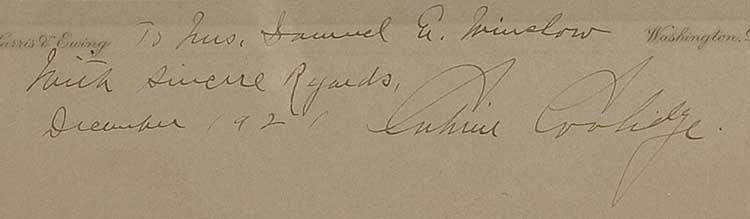 Harris & Ewing To Mrs. Samuel E. Winslow Washington, D
With sincere Regards,
December 1921 Calvin Coolidge.